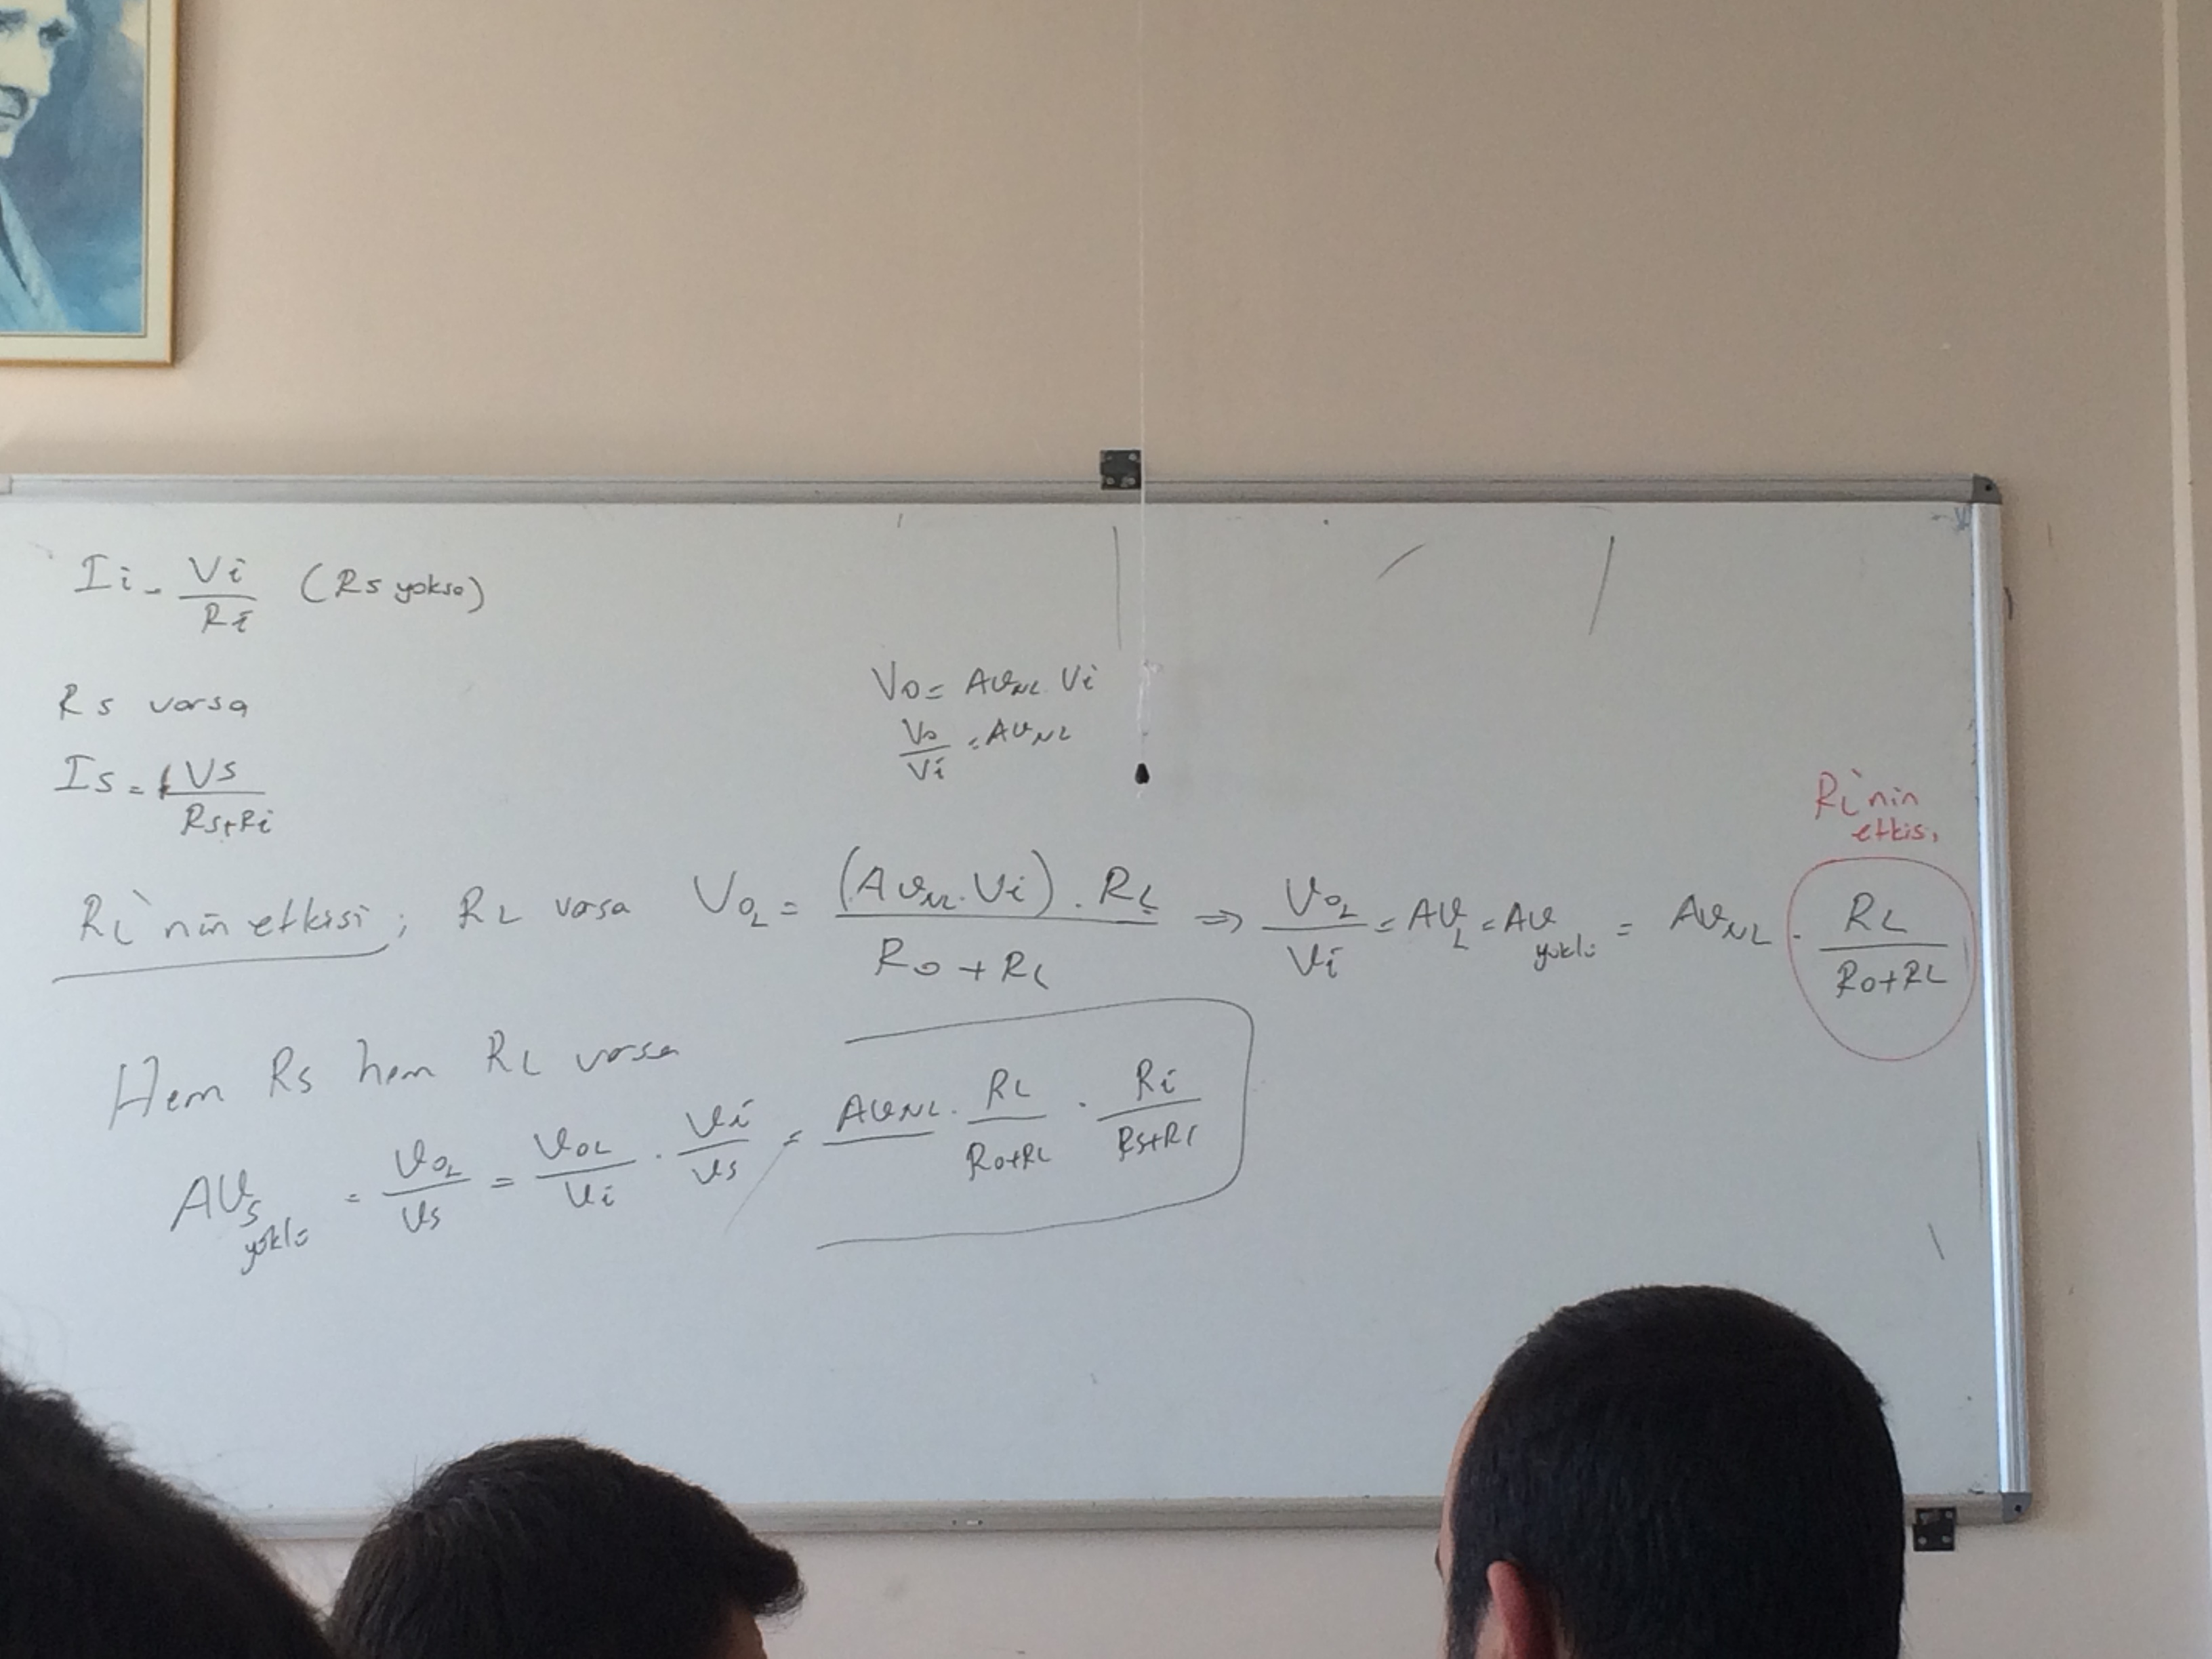 Ii = Vi / Ri (Rs yoksa)
Rs varsa
Is = Vs / Rs+Ri
Vo = AvNL . Vi
Vo / Vi = AvNL
RL'nin etkisi
RL'nin etkisi; RL varsa VoL = (AvNL . Vi) . RL / Ro + RL ⇒ VoL / Vi = AvL = Av yüklü = AvNL . RL / Ro+RL
Hem Rs hem RL varsa
Avs yüklü = VoL / Vs = VoL / Vi . Vi / Vs = AvNL . RL / Ro+RL . Ri / Rs+Ri